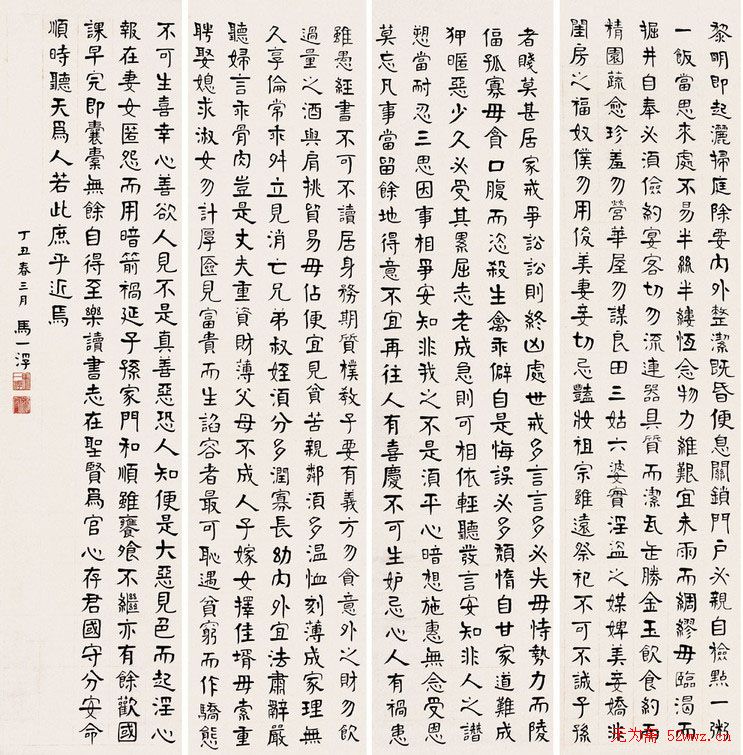 黎明即起灑掃庭除要內外整潔既昏便息關鎖門戶必親自檢點一粥
一飯當思來處不易半絲半縷恆念物力維艱宜未雨而綢繆毋臨渴而
掘井自奉必須儉約宴客切勿流連器具質而潔瓦缶勝金玉飲食約而
精園蔬愈珍羞勿營華屋勿謀良田三姑六婆實淫盜之媒婢美妾嬌非
閨房之福奴僕勿用俊美妻妾切忌豔妝祖宗雖遠祭祀不可不誠子孫
者賤莫甚居家戒爭訟訟則終凶處世戒多言言多必失毋恃勢力而陵
偪孤寡毋貪口腹而恣殺生禽乖僻自是悔誤必多頹惰自甘家道難成
狎暱惡少久必受其累屈志老成急則可相依輕聽發言安知非人之譖
愬當耐忍三思因事相爭安知非我之不是須平心暗想施惠無念受恩
莫忘凡事當留餘地得意不宜再往人有喜慶不可生妒忌心人有禍患
雖愚經書不可不讀居身務期質樸教子要有義方勿貪意外之財勿飲
過量之酒與肩挑貿易毋佔便宜見貧苦親鄰須多溫恤刻薄成家理無
久享倫常乖舛立見消亡兄弟叔姪須分多潤寡長幼內外宜法肅辭嚴
聽婦言乖骨肉豈是丈夫重資財薄父母不成人子嫁女擇佳壻毋索重
聘娶媳求淑女勿計厚匳見富貴而生諂容者最可恥遇貧窮而作驕態
不可生喜幸心善欲人見不是真善惡恐人知便是大惡見色而起淫心
報在妻女匿怨而用暗箭禍延子孫家門和順雖饔飧不繼亦有餘歡國
課早完即囊橐無餘自得至樂讀書志在聖賢為官心存君國守分安命
順時聽天為人若此庶乎近焉
丁丑春三月 馬一浮
52wwz.cn